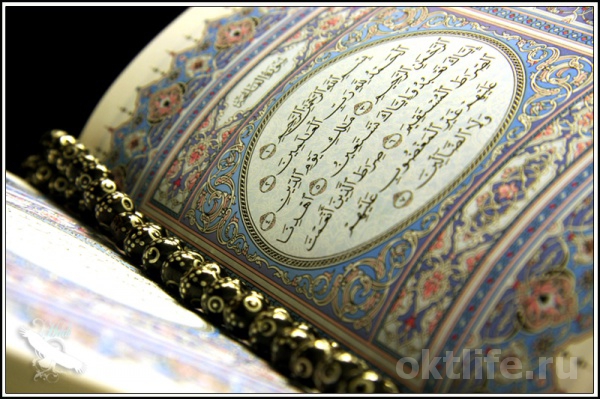 سورة الفاتحة
بِسْمِ اللَّهِ الرَّحْمَٰنِ الرَّحِيمِ ﴿١﴾
الْحَمْدُ لِلَّهِ رَبِّ الْعَالَمِينَ ﴿٢﴾
الرَّحْمَٰنِ الرَّحِيمِ ﴿٣﴾ مَالِكِ يَوْمِ الدِّينِ ﴿٤﴾
إِيَّاكَ نَعْبُدُ وَإِيَّاكَ نَسْتَعِينُ ﴿٥﴾ اهْدِنَا
الصِّرَاطَ الْمُسْتَقِيمَ ﴿٦﴾ صِرَاطَ الَّذِينَ أَنْعَمْتَ
عَلَيْهِمْ غَيْرِ الْمَغْضُوبِ عَلَيْهِمْ
وَلَا الضَّالِّينَ ﴿٧﴾
oktlife.ru